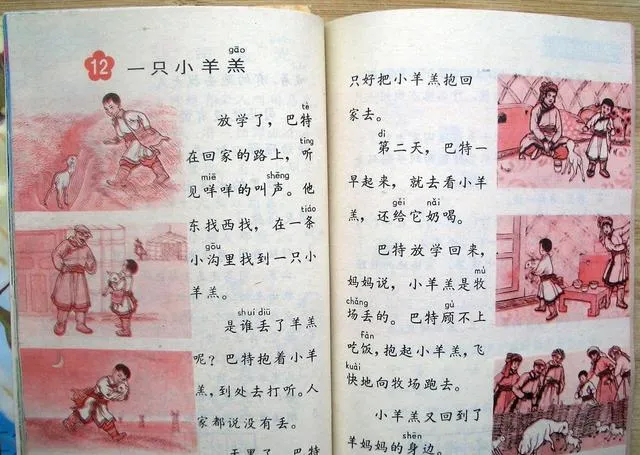 12 一只小羊羔
gāo
放学了，巴特
tè
在回家的路上，听
tīng
见咩咩的叫声。他
miē shēng
东找西找，在一条
tiáo
小沟里找到一只小
gōu
羊羔。
是谁丢了羊羔
shuí diū
呢？巴特抱着小羊
羔，到处去打听。人
家都说没有丢。
天黑了，巴特
只好把小羊羔抱回
家去。
第二天，巴特一
dì
早起来，就去看小羊
羔，还给它奶喝。
gěi nǎi
巴特放学回来，
妈妈说，小羊羔是牧
mù
场丢的。巴特顾不上
chǎng gù
吃饭，抱起小羊羔，飞
fàn
快地向牧场跑去。
kuài
小羊羔又回到了
羊妈妈的身边。
shēn